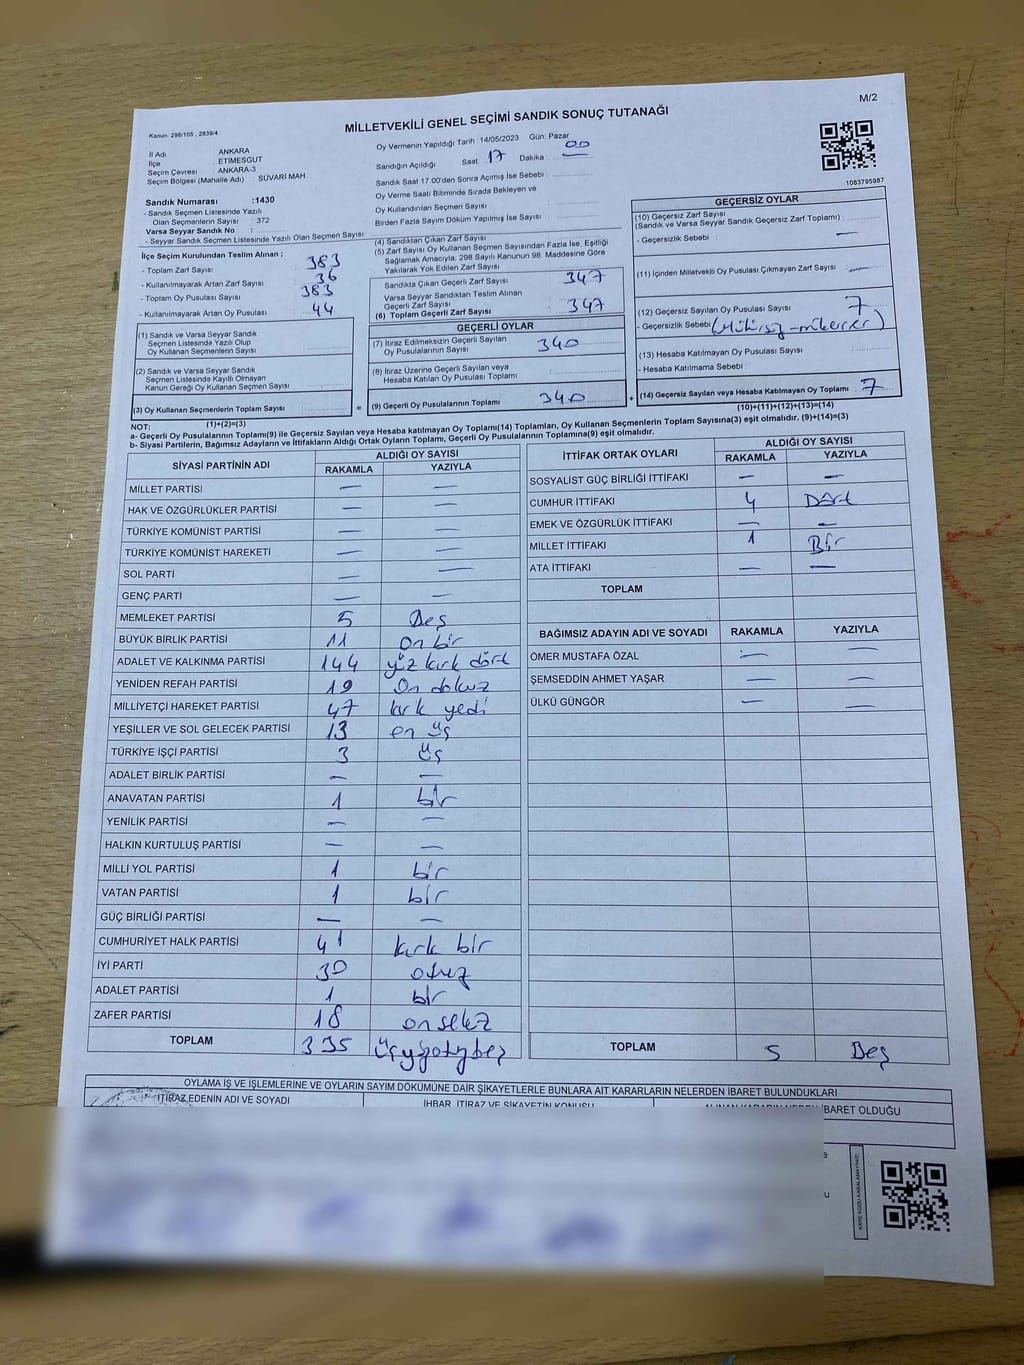 M/2
Kanun: 298/105 , 2839/4
MİLLETVEKİLİ GENEL SEÇİMİ SANDIK SONUÇ TUTANAĞI
İl Adı ANKARA
İlçe ETİMESGUT
Seçim Çevresi ANKARA-3
Seçim Bölgesi (Mahalle Adı) SÜVARİ MAH.
Oy Vermenin Yapıldığı Tarih :14/05/2023 Gün: Pazar
Sandığın Açıldığı Saat 17 Dakika : 00
Sandık Saat 17.00'den Sonra Açımış İse Sebebi :
Oy Verme Saati Bitiminde Sırada Bekleyen ve
Oy Kullandırılan Seçmen Sayısı
Birden Fazla Sayım Döküm Yapılmış İse Sayısı :
1083795987
Sandık Numarası :1430
- Sandık Seçmen Listesinde Yazılı
Olan Seçmenlerin Sayısı : 372
Varsa Seyyar Sandık No :
- Seyyar Sandık Seçmen Listesinde Yazılı Olan Seçmen Sayısı
İlçe Seçim Kurulundan Teslim Alınan ;
- Toplam Zarf Sayısı 383
- Kullanılmayarak Artan Zarf Sayısı 36
- Toplam Oy Pusulası Sayısı 383
- Kullanılmayarak Artan Oy Pusulası 44
(1) Sandık ve Varsa Seyyar Sandık
Seçmen Listesinde Yazılı Olup
Oy Kullanan Seçmenlerin Sayısı
(2) Sandık ve Varsa Seyyar Sandık
Seçmen Listesinde Kayıtlı Olmayan
Kanun Gereği Oy Kullanan Seçmen Sayısı
(3) Oy Kullanan Seçmenlerin Toplam Sayısı
(1)+(2)=(3)
(4) Sandıktan Çıkan Zarf Sayısı
(5) Zarf Sayısı Oy Kullanan Seçmen Sayısından Fazla İse, Eşitliği
Sağlamak Amacıyla, 298 Sayılı Kanunun 98. Maddesine Göre
Yakılarak Yok Edilen Zarf Sayısı
Sandıkta Çıkan Geçerli Zarf Sayısı 347
Varsa Seyyar Sandıktan Teslim Alınan
Geçerli Zarf Sayısı
(6) Toplam Geçerli Zarf Sayısı 347
GEÇERLİ OYLAR
(7) İtiraz Edilmeksizin Geçerli Sayılan
Oy Pusulalarının Sayısı 340
(8) İtiraz Üzerine Geçerli Sayılan veya
Hesaba Katılan Oy Pusulası Toplamı
= (9) Geçerli Oy Pusulalarının Toplamı 340 +
GEÇERSİZ OYLAR
(10) Geçersiz Zarf Sayısı
(Sandık ve Varsa Seyyar Sandık Geçersiz Zarf Toplamı) :
- Geçersizlik Sebebi : —
(11) İçinden Milletvekili Oy Pusulası Çıkmayan Zarf Sayısı —
(12) Geçersiz Sayılan Oy Pusulası Sayısı 7
- Geçersizlik Sebebi (Mühürsüz-mükerrer)
(13) Hesaba Katılmayan Oy Pusulası Sayısı :
- Hesaba Katılmama Sebebi :
(14) Geçersiz Sayılan veya Hesaba Katılmayan Oy Toplamı 7
(10)+(11)+(12)+(13)=(14)
NOT:
a- Geçerli Oy Pusulalarının Toplamı(9) ile Geçersiz Sayılan veya Hesaba Katılmayan Oy Toplamı(14) Toplamları, Oy Kullanan Seçmenlerin Toplam Sayısına(3) eşit olmalıdır. (9)+(14)=(3)
b- Siyasi Partilerin, Bağımsız Adayların ve İttifakların Aldığı Ortak Oyların Toplamı, Geçerli Oy Pusulalarının Toplamına(9) eşit olmalıdır.
SİYASİ PARTİNİN ADI ALDIĞI OY SAYISI
RAKAMLA YAZIYLA
MİLLET PARTİSİ — —
HAK VE ÖZGÜRLÜKLER PARTİSİ — —
TÜRKİYE KOMÜNİST PARTİSİ — —
TÜRKİYE KOMÜNİST HAREKETİ — —
SOL PARTİ — —
GENÇ PARTİ — —
MEMLEKET PARTİSİ 5 Beş
BÜYÜK BİRLİK PARTİSİ 11 On bir
ADALET VE KALKINMA PARTİSİ 144 yüz kırk dört
YENİDEN REFAH PARTİSİ 19 On dokuz
MİLLİYETÇİ HAREKET PARTİSİ 47 kırk yedi
YEŞİLLER VE SOL GELECEK PARTİSİ 13 on üç
TÜRKİYE İŞÇİ PARTİSİ 3 üç
ADALET BİRLİK PARTİSİ — —
ANAVATAN PARTİSİ 1 bir
YENİLİK PARTİSİ — —
HALKIN KURTULUŞ PARTİSİ — —
MİLLİ YOL PARTİSİ 1 bir
VATAN PARTİSİ 1 bir
GÜÇ BİRLİĞİ PARTİSİ — —
CUMHURİYET HALK PARTİSİ 41 kırk bir
İYİ PARTİ 30 otuz
ADALET PARTİSİ 1 bir
ZAFER PARTİSİ 18 onsekiz
TOPLAM 335 üçyüzotuzbeş
İTTİFAK ORTAK OYLARI ALDIĞI OY SAYISI
RAKAMLA YAZIYLA
SOSYALİST GÜÇ BİRLİĞİ İTTİFAKI — —
CUMHUR İTTİFAKI 4 Dört
EMEK VE ÖZGÜRLÜK İTTİFAKI — —
MİLLET İTTİFAKI 1 Bir
ATA İTTİFAKI — —
TOPLAM
BAĞIMSIZ ADAYIN ADI VE SOYADI RAKAMLA YAZIYLA
ÖMER MUSTAFA ÖZAL — —
ŞEMSEDDİN AHMET YAŞAR — —
ÜLKÜ GÜNGÖR — —
TOPLAM 5 Beş
OYLAMA İŞ VE İŞLEMLERİNE VE OYLARIN SAYIM DÖKÜMÜNE DAİR ŞİKAYETLERLE BUNLARA AİT KARARLARIN NELERDEN İBARET BULUNDUKLARI
İTİRAZ EDENİN ADI VE SOYADI
İHBAR, İTİRAZ VE ŞİKAYETİN KONUSU
ALINAN KARARIN NEDEN İBARET OLDUĞU
KARE KODU KARALAMAYINIZ!